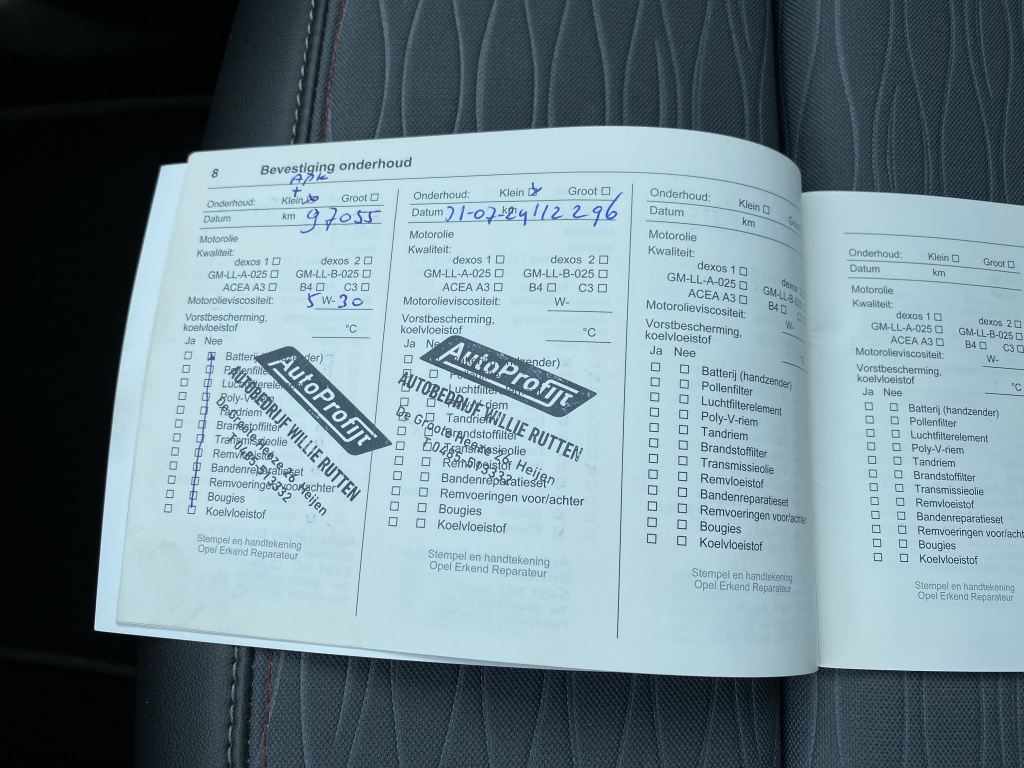 8 Bevestiging onderhoud
APK
+
Onderhoud: Klein Groot
Datum km 97055
Motorolie
Kwaliteit:
dexos 1 dexos 2
GM-LL-A-025 GM-LL-B-025
ACEA A3 B4 C3
Motorolieviscositeit: 5 W-30
Vorstbescherming,
koelvloeistof °C
Ja Nee
Batterij (handzender)
Pollenfilter
Luchtfilterelement
Poly-V-riem
Tandriem
Brandstoffilter
Transmissieolie
Remvloeistof
Bandenreparatieset
Remvoeringen voor/achter
Bougies
Koelvloeistof
AutoProfijt
AUTOBEDRIJF WILLIE RUTTEN
De Groote Heeze 26, Heijen
T 0485-513332
Stempel en handtekening
Opel Erkend Reparateur
Onderhoud: Klein Groot
Datum 21-07-24 km 112296
Motorolie
Kwaliteit:
dexos 1 dexos 2
GM-LL-A-025 GM-LL-B-025
ACEA A3 B4 C3
Motorolieviscositeit: W-
Vorstbescherming,
koelvloeistof °C
Ja Nee
Batterij (handzender)
Pollenfilter
Luchtfilterelement
Poly-V-riem
Tandriem
Brandstoffilter
Transmissieolie
Remvloeistof
Bandenreparatieset
Remvoeringen voor/achter
Bougies
Koelvloeistof
AutoProfijt
AUTOBEDRIJF WILLIE RUTTEN
De Groote Heeze 26, Heijen
T 0485-513332
Stempel en handtekening
Opel Erkend Reparateur
Onderhoud: Klein
Datum km
Motorolie
Kwaliteit:
dexos 1
GM-LL-A-025
ACEA A3 B4
Motorolieviscositeit: W-
Vorstbescherming,
koelvloeistof
Ja Nee
Batterij (handzender)
Pollenfilter
Luchtfilterelement
Poly-V-riem
Tandriem
Brandstoffilter
Transmissieolie
Remvloeistof
Bandenreparatieset
Remvoeringen voor/achter
Bougies
Koelvloeistof
Stempel en handtekening
Opel Erkend Reparateur
Onderhoud: Klein Groot
Datum km
Motorolie
Kwaliteit:
dexos 1 dexos 2
GM-LL-A-025 GM-LL-B-025
ACEA A3 B4 C3
Motorolieviscositeit: W-
Vorstbescherming,
koelvloeistof °C
Ja Nee
Batterij (handzender)
Pollenfilter
Luchtfilterelement
Poly-V-riem
Tandriem
Brandstoffilter
Transmissieolie
Remvloeistof
Bandenreparatieset
Remvoeringen
Bougies
Koelvloeistof
Stempel en handtekening
Opel Erkend Reparateur